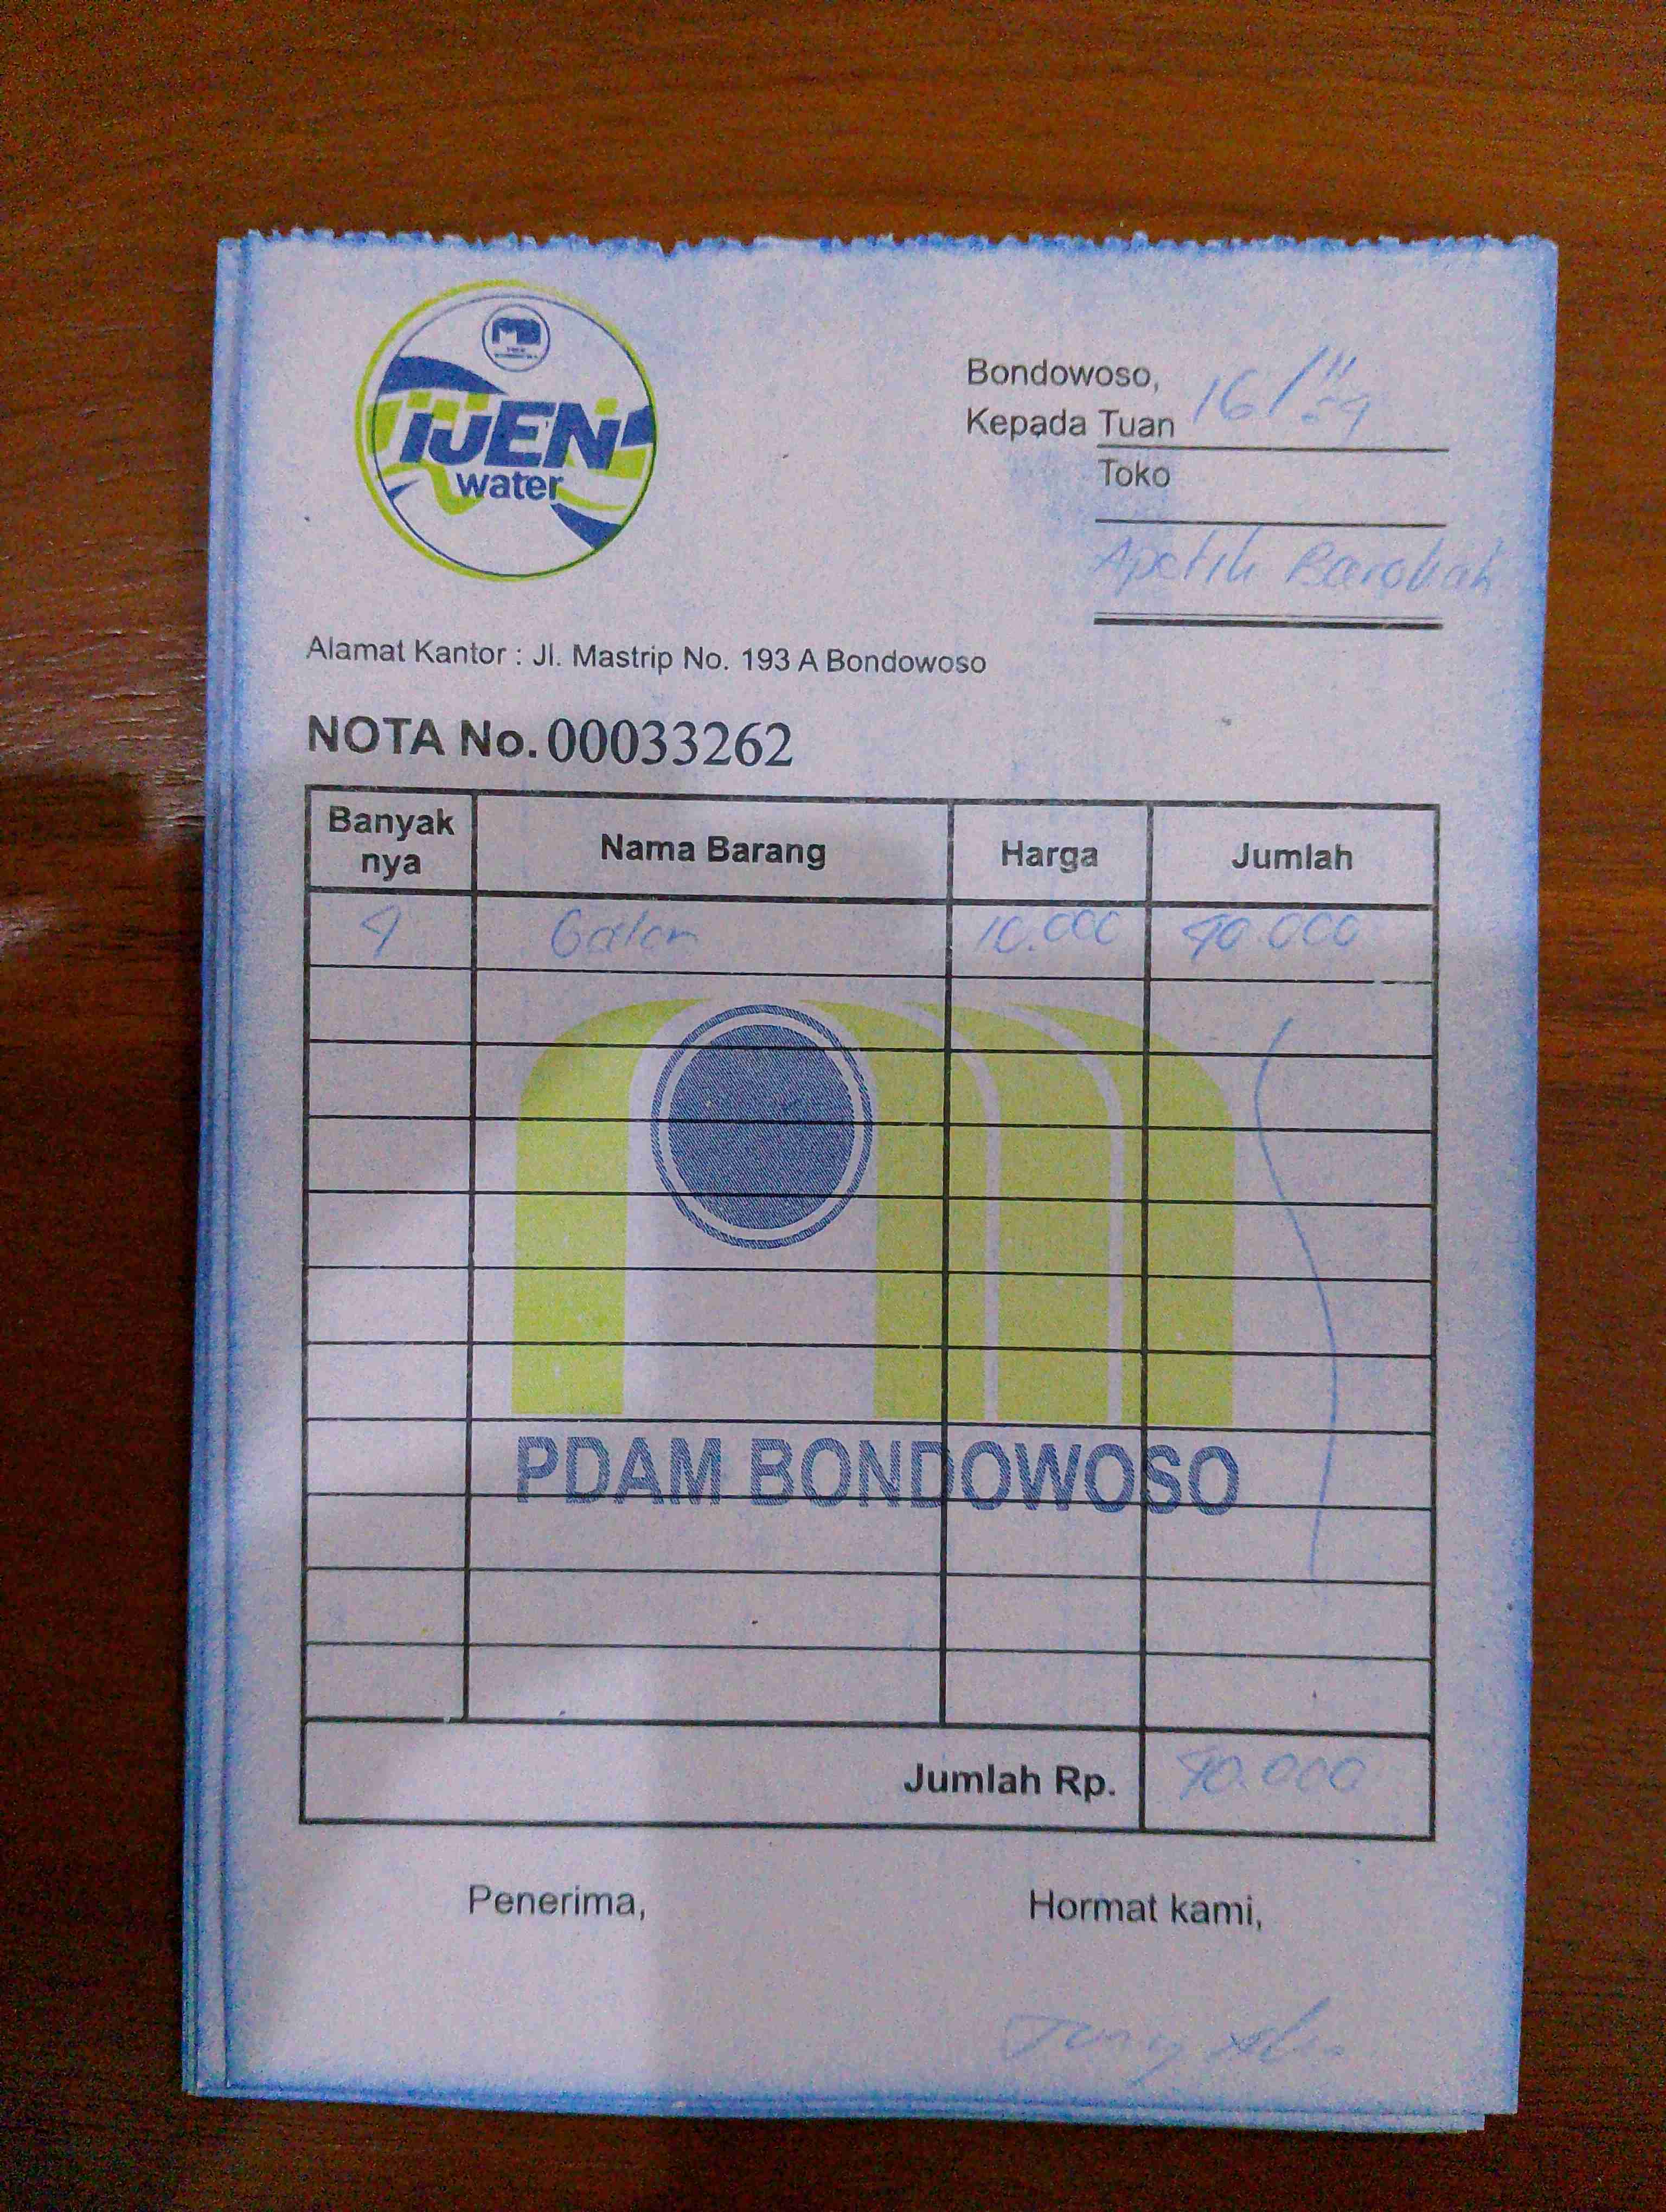 IJEN
water
Bondowoso, 16/11
Kepada Tuan
Toko
Apotik Barokah
Alamat Kantor : Jl. Mastrip No. 193 A Bondowoso
NOTA No. 00033262
Banyak nya Nama Barang Harga Jumlah
4 Galon 10.000 40.000
PDAM BONDOWOSO
Jumlah Rp. 40.000
Penerima, Hormat kami,